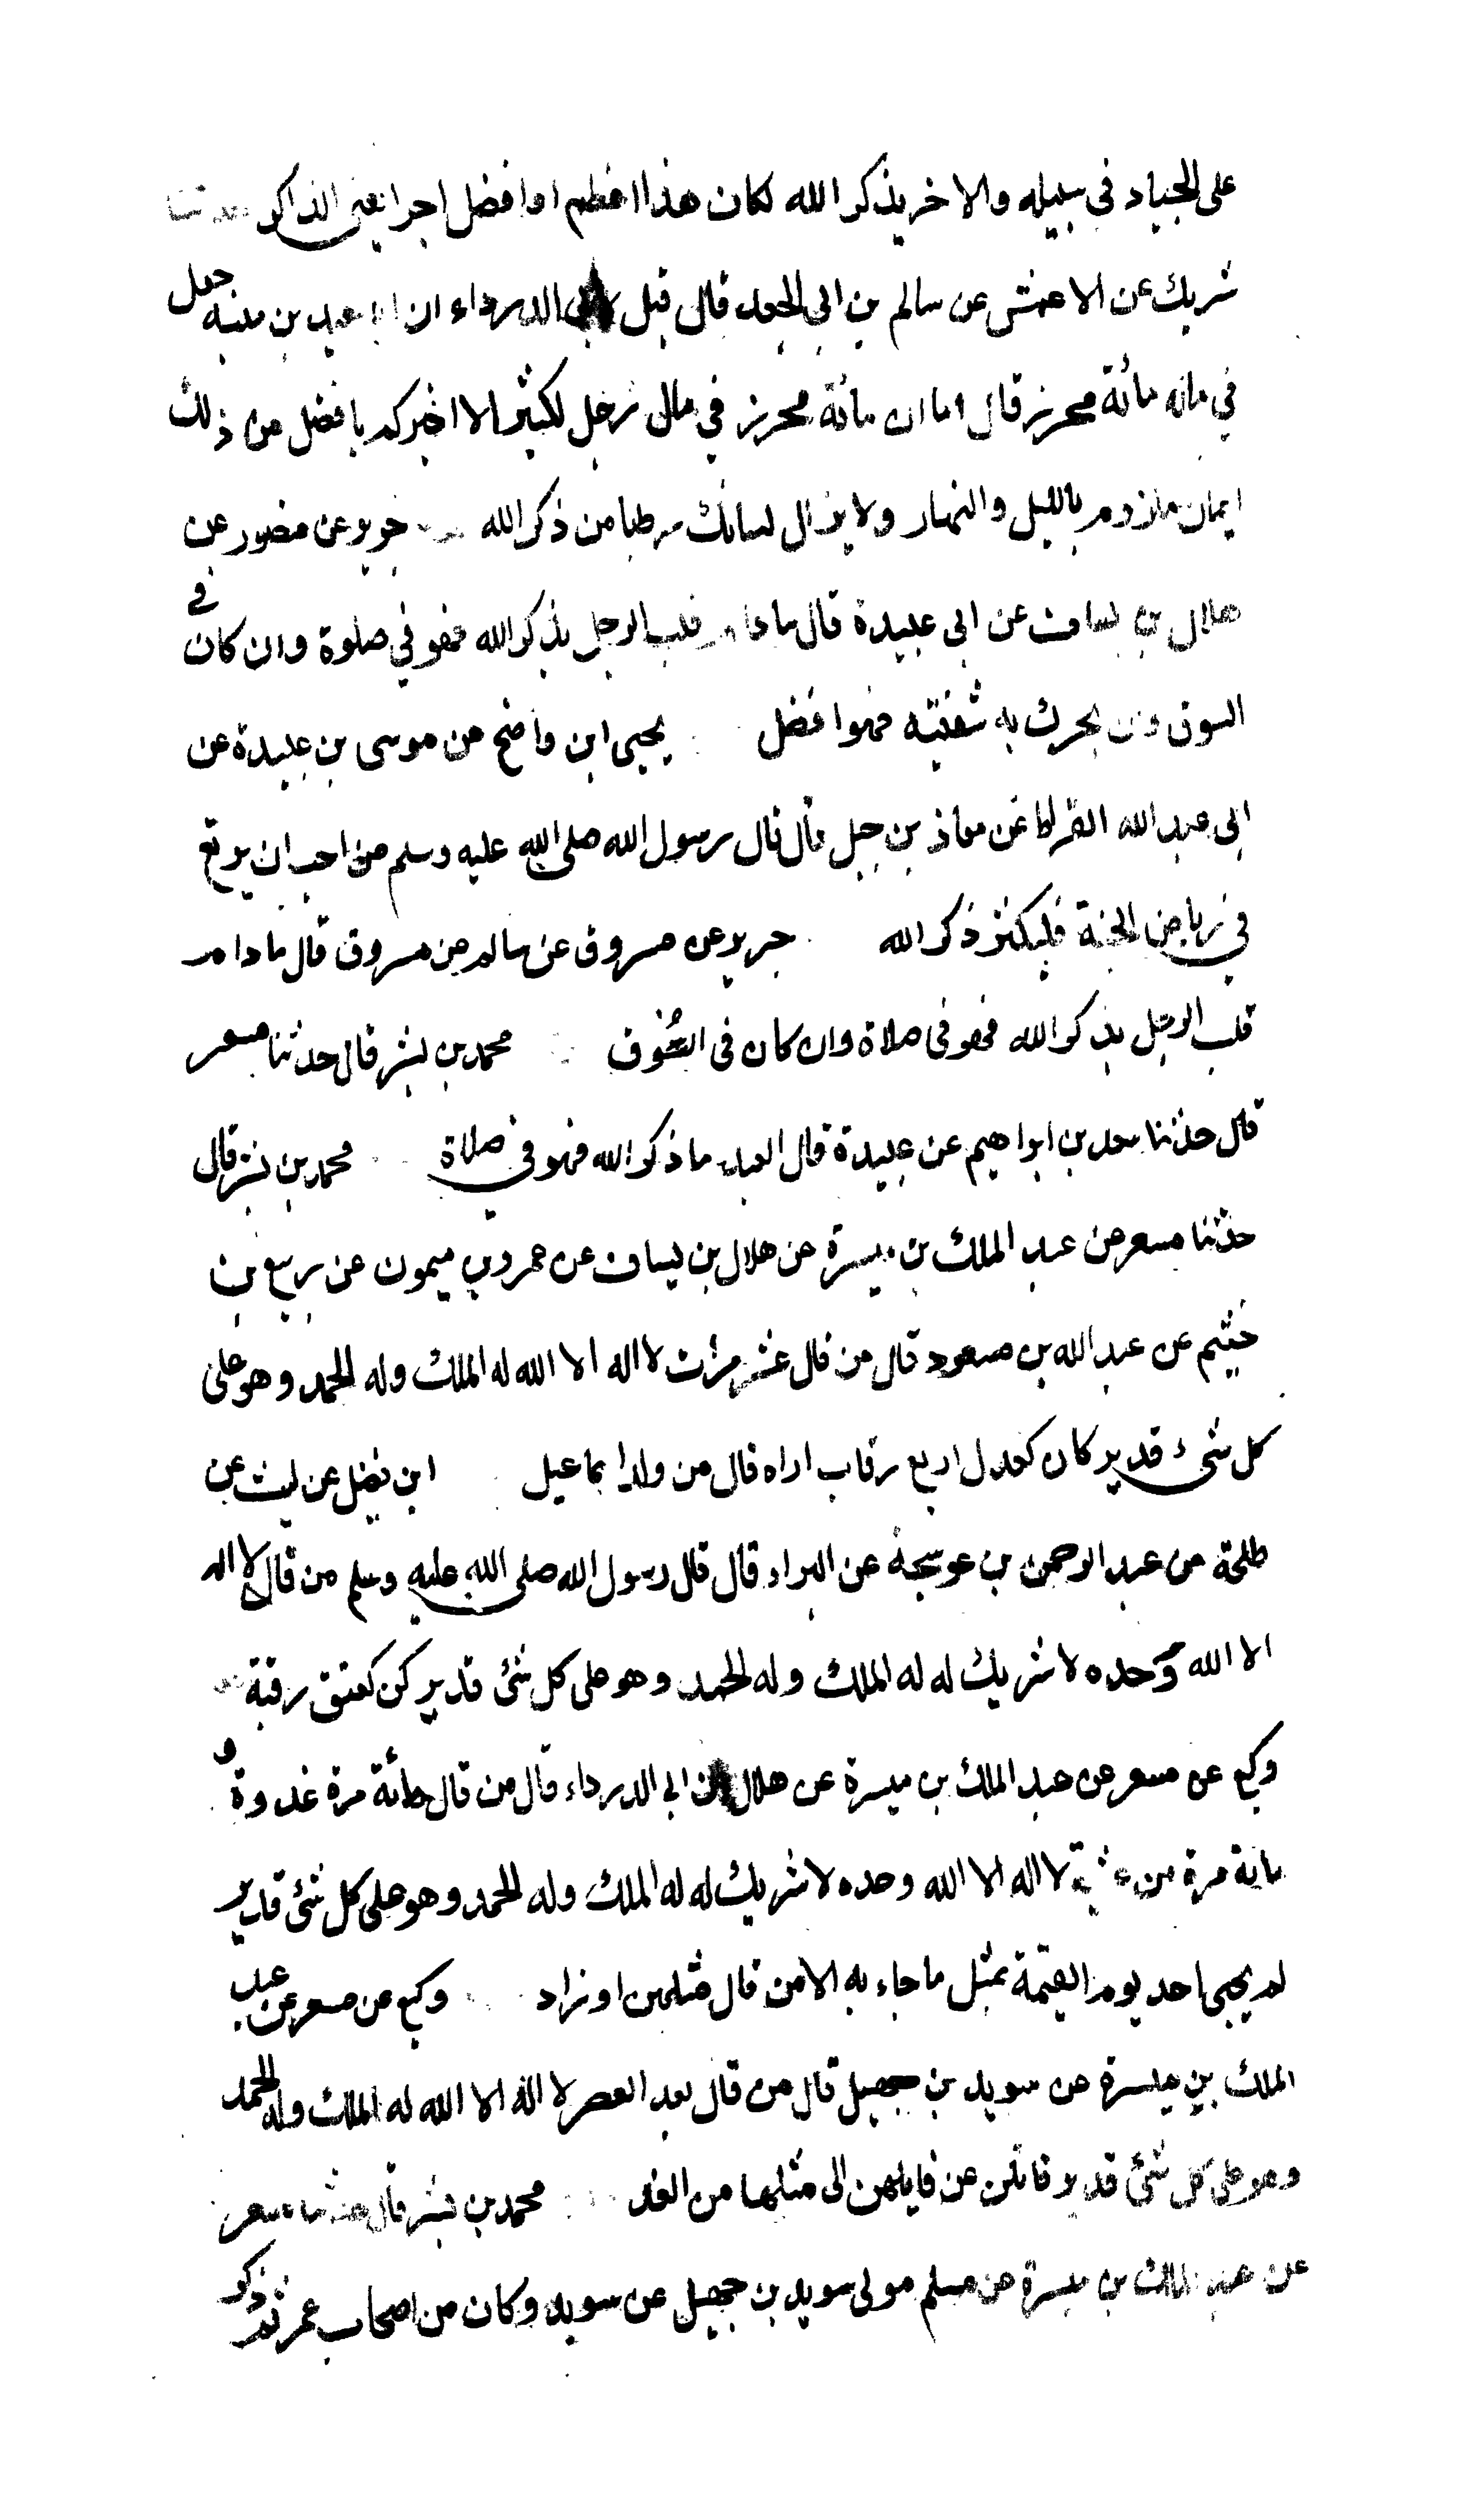 على الجياد في سبيله والاخر يذكر الله لكان هذا اعظم او افضل اجرا يعني الذاكر حدثنا
شريك عن الاعمش عن سالم بن ابي الجعد قال قيل لابي الدرداء ان ابا سعيد بن منبه جعل
في ماله مائة محررز قال اما ان مائة محررز في مال رجل لكثير الا اخبركم بافضل من ذلك
ايمان ملزوم بالليل والنهار ولا يزال لسانك رطبا من ذكر الله جرير عن منصور عن
هلال بن يساف عن ابي عبيدة قال مادام قلب الرجل يذكر الله فهو في صلوة وان كان في
السوق وان يحرك به شفتيه فهو افضل يحيى ابن واضح عن موسى بن عبيدة عن
ابي عبد الله القراظ عن معاذ بن جبل قال قال رسول الله صلى الله عليه وسلم من احب ان يرتع
في رياض الجنة فليكثر ذكر الله جرير عن مسروق عن سالم عن مسروق قال ما دام
قلب الرجل يذكر الله فهو في صلاة وان كان في السُّوق محمد بن بشر قال حدثنا مسعر
قال حدثنا سعد بن ابراهيم عن عبيدة قال العبد ما ذكر الله فهو في صلاة محمد بن بشر قال
حدثنا مسعر عن عبد الملك بن ميسرة عن هلال بن يساف عن عمرو بن ميمون عن ربيع بن
خثيم عن عبد الله بن مسعود قال من قال عشر مرات لا اله الا الله له الملك وله الحمد وهو على
كل شيء قدير كان كعدل اربع رقاب اراه قال من ولد اسماعيل ابن فضيل عن ليث عن
طلحة عن عبد الرحمن بن عوسجة عن البراء قال قال رسول الله صلى الله عليه وسلم من قال لا اله
الا الله وحده لا شريك له له الملك وله الحمد وهو على كل شئ قدير كن كعتق رقبة
وكيع عن مسعر عن عبد الملك بن ميسرة عن هلال عن ابي الدرداء قال من قال مائة مرة غدوة و
مائة مرة من عشية لا اله الا الله وحده لا شريك له له الملك وله الحمد وهو على كل شئ قدير
لم يجئ احد يوم القيمة بمثل ما جاء به الا من قال مثلهن او زاد وكيع عن مسعر عن عبد
الملك بن ميسرة عن سويد بن جهيل قال من قال بعد العصر لا اله الا الله له الملك وله الحمد
وهو على كل شئ قدير قاتلن عن قايلهن الى مثلها من الغد محمد بن بشر قال حدثنا مسعر
عن عبد الملك بن ميسرة عن مسلم مولى سويد بن جهيل عن سويد وكان من اصحاب عمر ثم ذكر